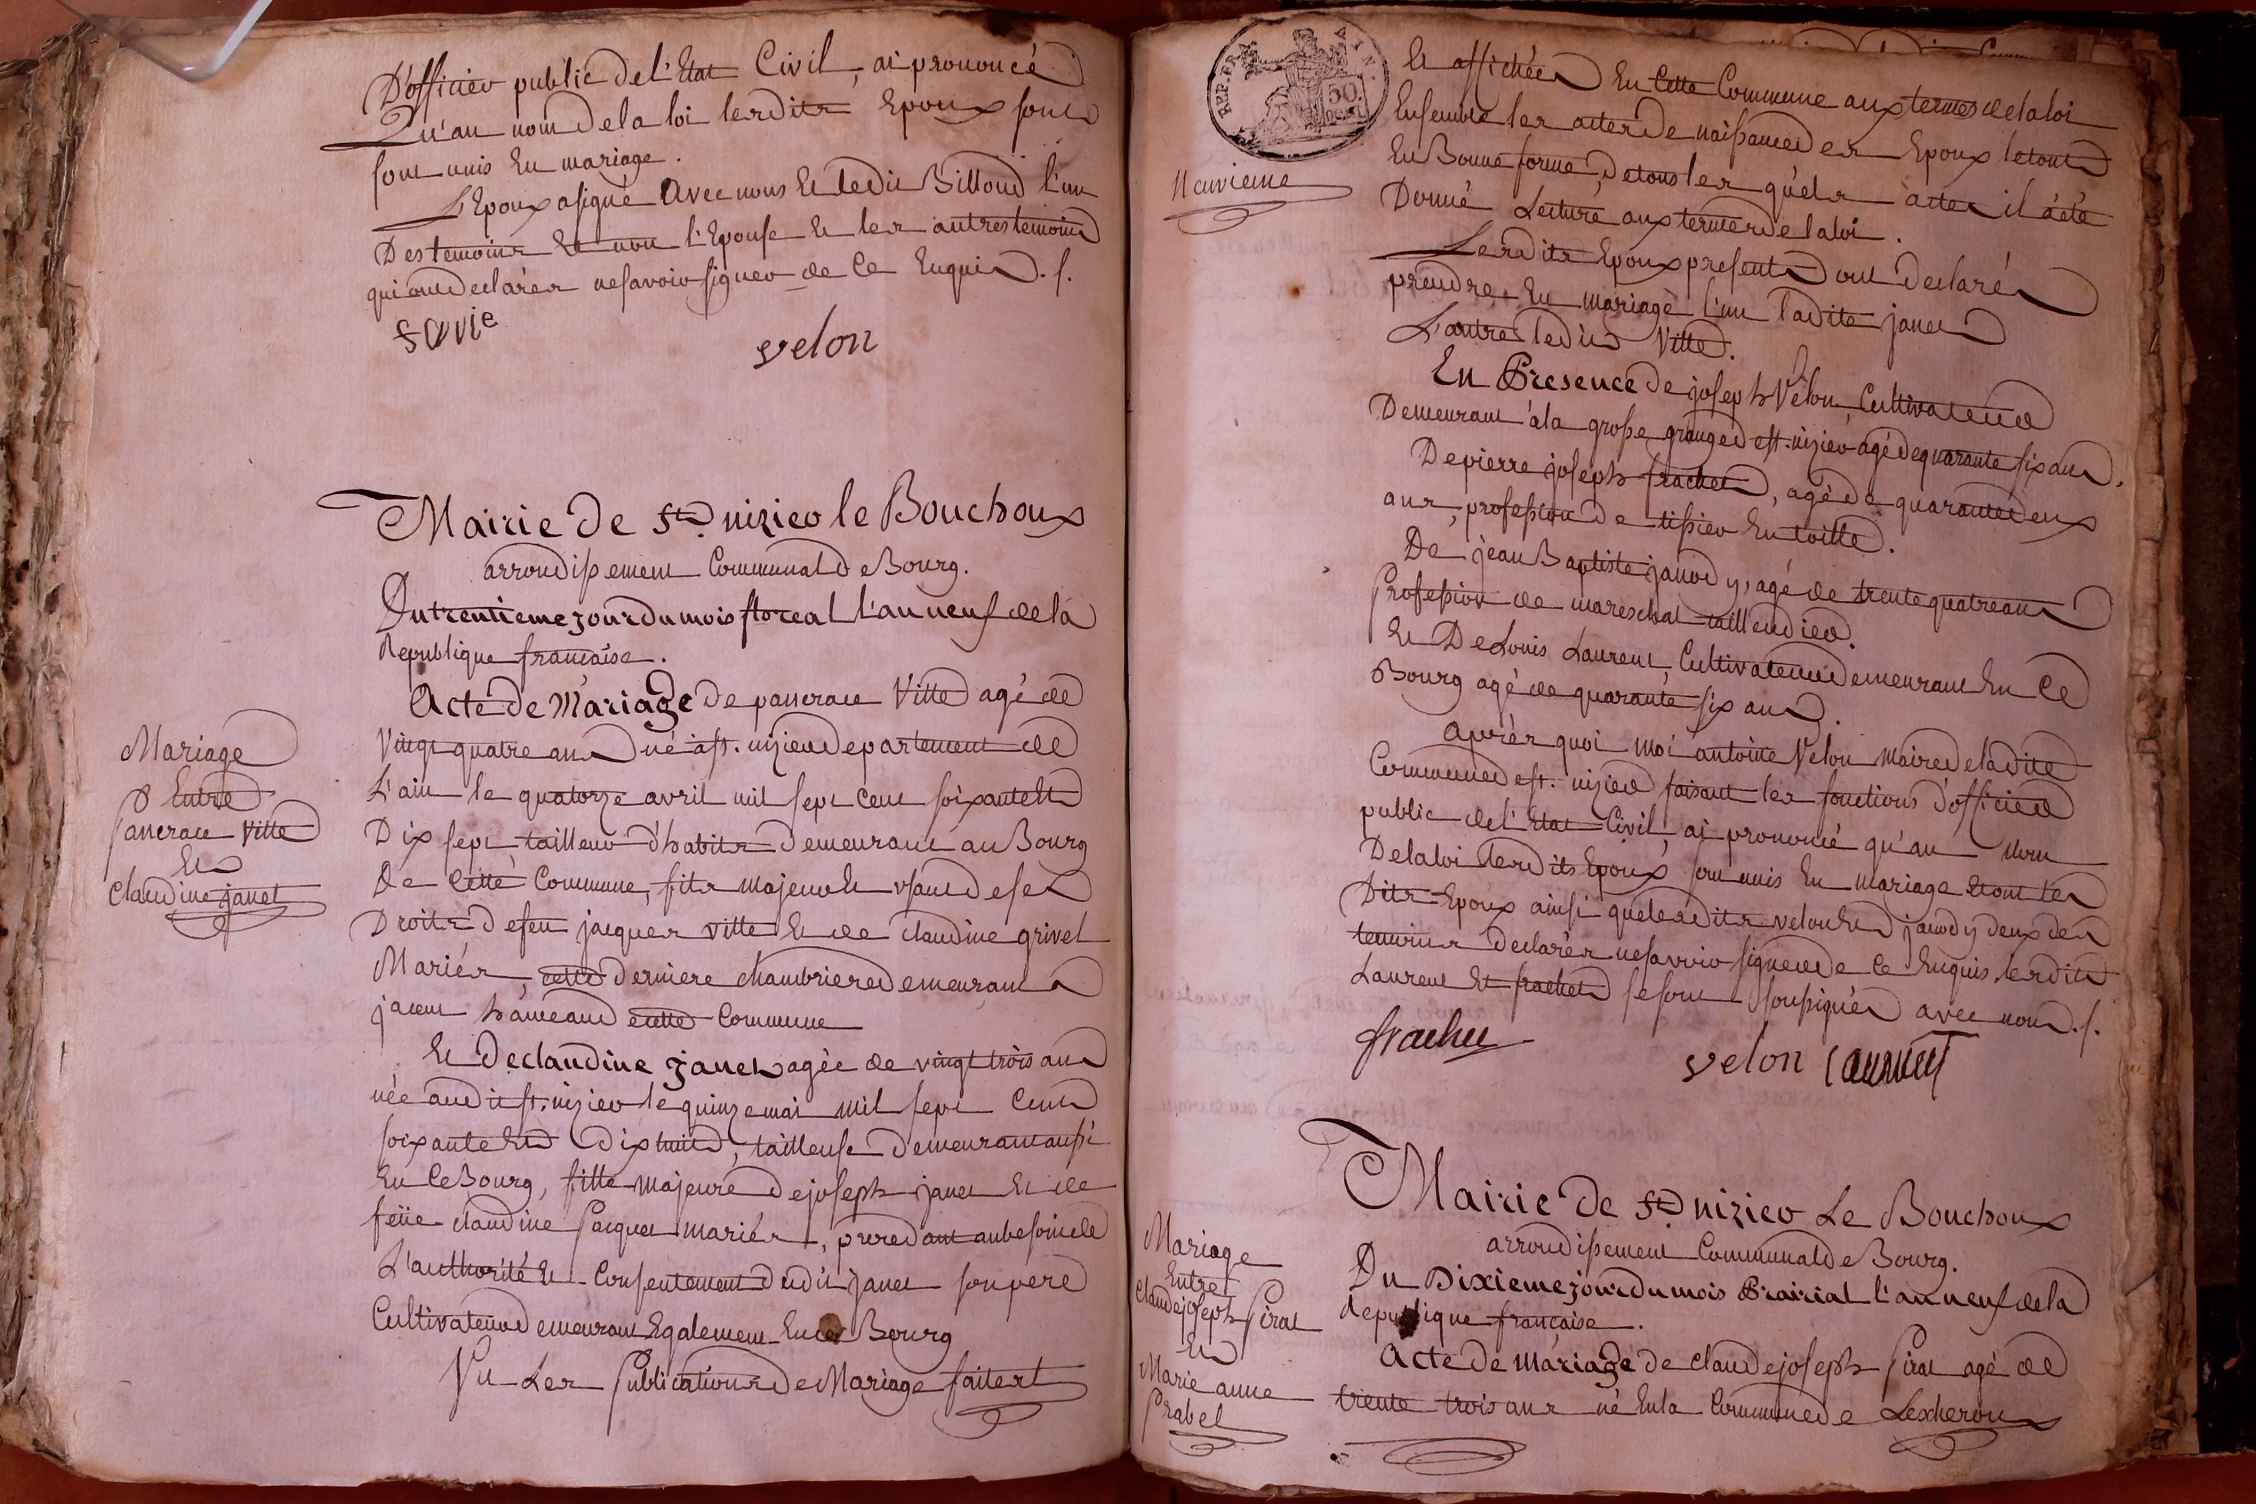 D'officier public de l'Etat Civil, ai prononcé
Qu'au nom de la loi lesdits Epoux sont
sont unis En mariage.
L'Epoux a signé Avec nous Et ledit Billoud l'un
Des temoins Et non l'Epouse Et les autres temoins
qui ont declarés ne savoir signer de ce Enquis. /.
savie
velon
Mairie de St. nizier le Bouchoux
arrondissement Communal de Bourg.
Du trentieme jour du mois floreal l'an neuf de la
Republique française.
Mariage
Entre
pancrace Vitte
Et
Claudine janet
Acte de Mariage de pancrace Vitte agé de
Vingt quatre ans né a St. nizier departement de
L'ain le quatorze avril mil sept cent soixante Et
Dix sept tailleur d'habits demeurant au Bourg
De Cette Commune, fils majeur Et usant de ses
Droits de feu jacques vitte Et de claudine grivel
Mariés, cette derniere chambriere demeurant a
hameau de cette Commune
Et De claudine janet agée de vingt trois ans
née audit St. nizier le quinze mai mil sept Cent
soixante Et Dix huit, tailleuse demeurant aussi
En Ce Bourg, fille majeure de joseph janet Et de
feüe claudine pacquet mariés, procedant
L'authorité Et Consentement dudit janet son pere
Cultivateur demeurant Egalement En ce Bourg
Vu Les Publications de Mariage faites Et
REP. FRA. AIN.
50 cen.
neuvieme
Et affichées En Cette Commune aux termes de la loi
Ensemble les actes de naissance des Epoux le tout
En Bonne forme, de tous les quels actes il a été
Donné Lecture aux termes de la loi.
Lesdits Epoux presents ont declarés
prendre En mariage l'un ladite janet
L'autre ledit Vitte.
En Presence de joseph Velon, Cultivateur
Demeurant à la grosse grange de St. nizier agé de quarante six ans.
De pierre joseph frachet, agé de quarante deux
ans, profession de tissier En toille.
De jean Baptiste janody, agé de trente quatre ans
Profession de mareschal taillendier.
Et De Louis Laurent Cultivateur demeurant En Ce
Bourg agé de quarante six ans.
Après quoi moi antoine Velon maire de ladite
Commune de St. nizier faisant les fonctions d'officier
public de l'Etat Civil, ai prononcé qu'au Nom
De la loi lesdits Epoux sont unis En mariage Et ont les
Dits Epoux ainsi que lesdits velon Et janody deux des
temoins declarés ne savoir signer de Ce Enquis lesdits
Laurent Et frachet se sont soussignés avec nous. /.
frachet
velon Laurent
Mairie de St. nizier Le Bouchoux
arrondissement Communal de Bourg.
Du Dixieme jour du mois Prairial l'an neuf de la
Republique française.
Mariage
Entre
Claude joseph Pirat
Et
Marie anne
Prabel
Acte de mariage de claude joseph Pirat agé de
trente trois ans né En la Commune de Lescheroux